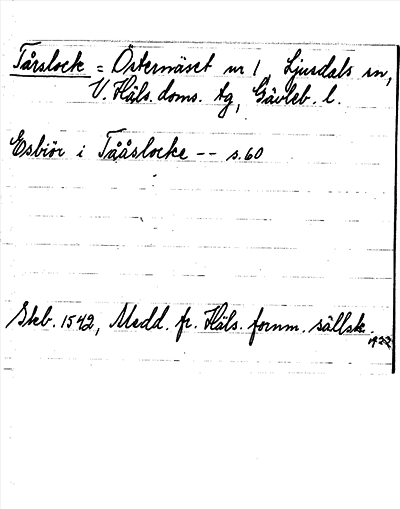 Tårslock = Östernäset nr 1, Ljusdals sn,
V. Häls. doms. tg, Gävleb. l.
Esbiör i Tååslocke -- s. 60
Skb. 1542, Medd. fr. Häls. fornm. sällsk.
1922